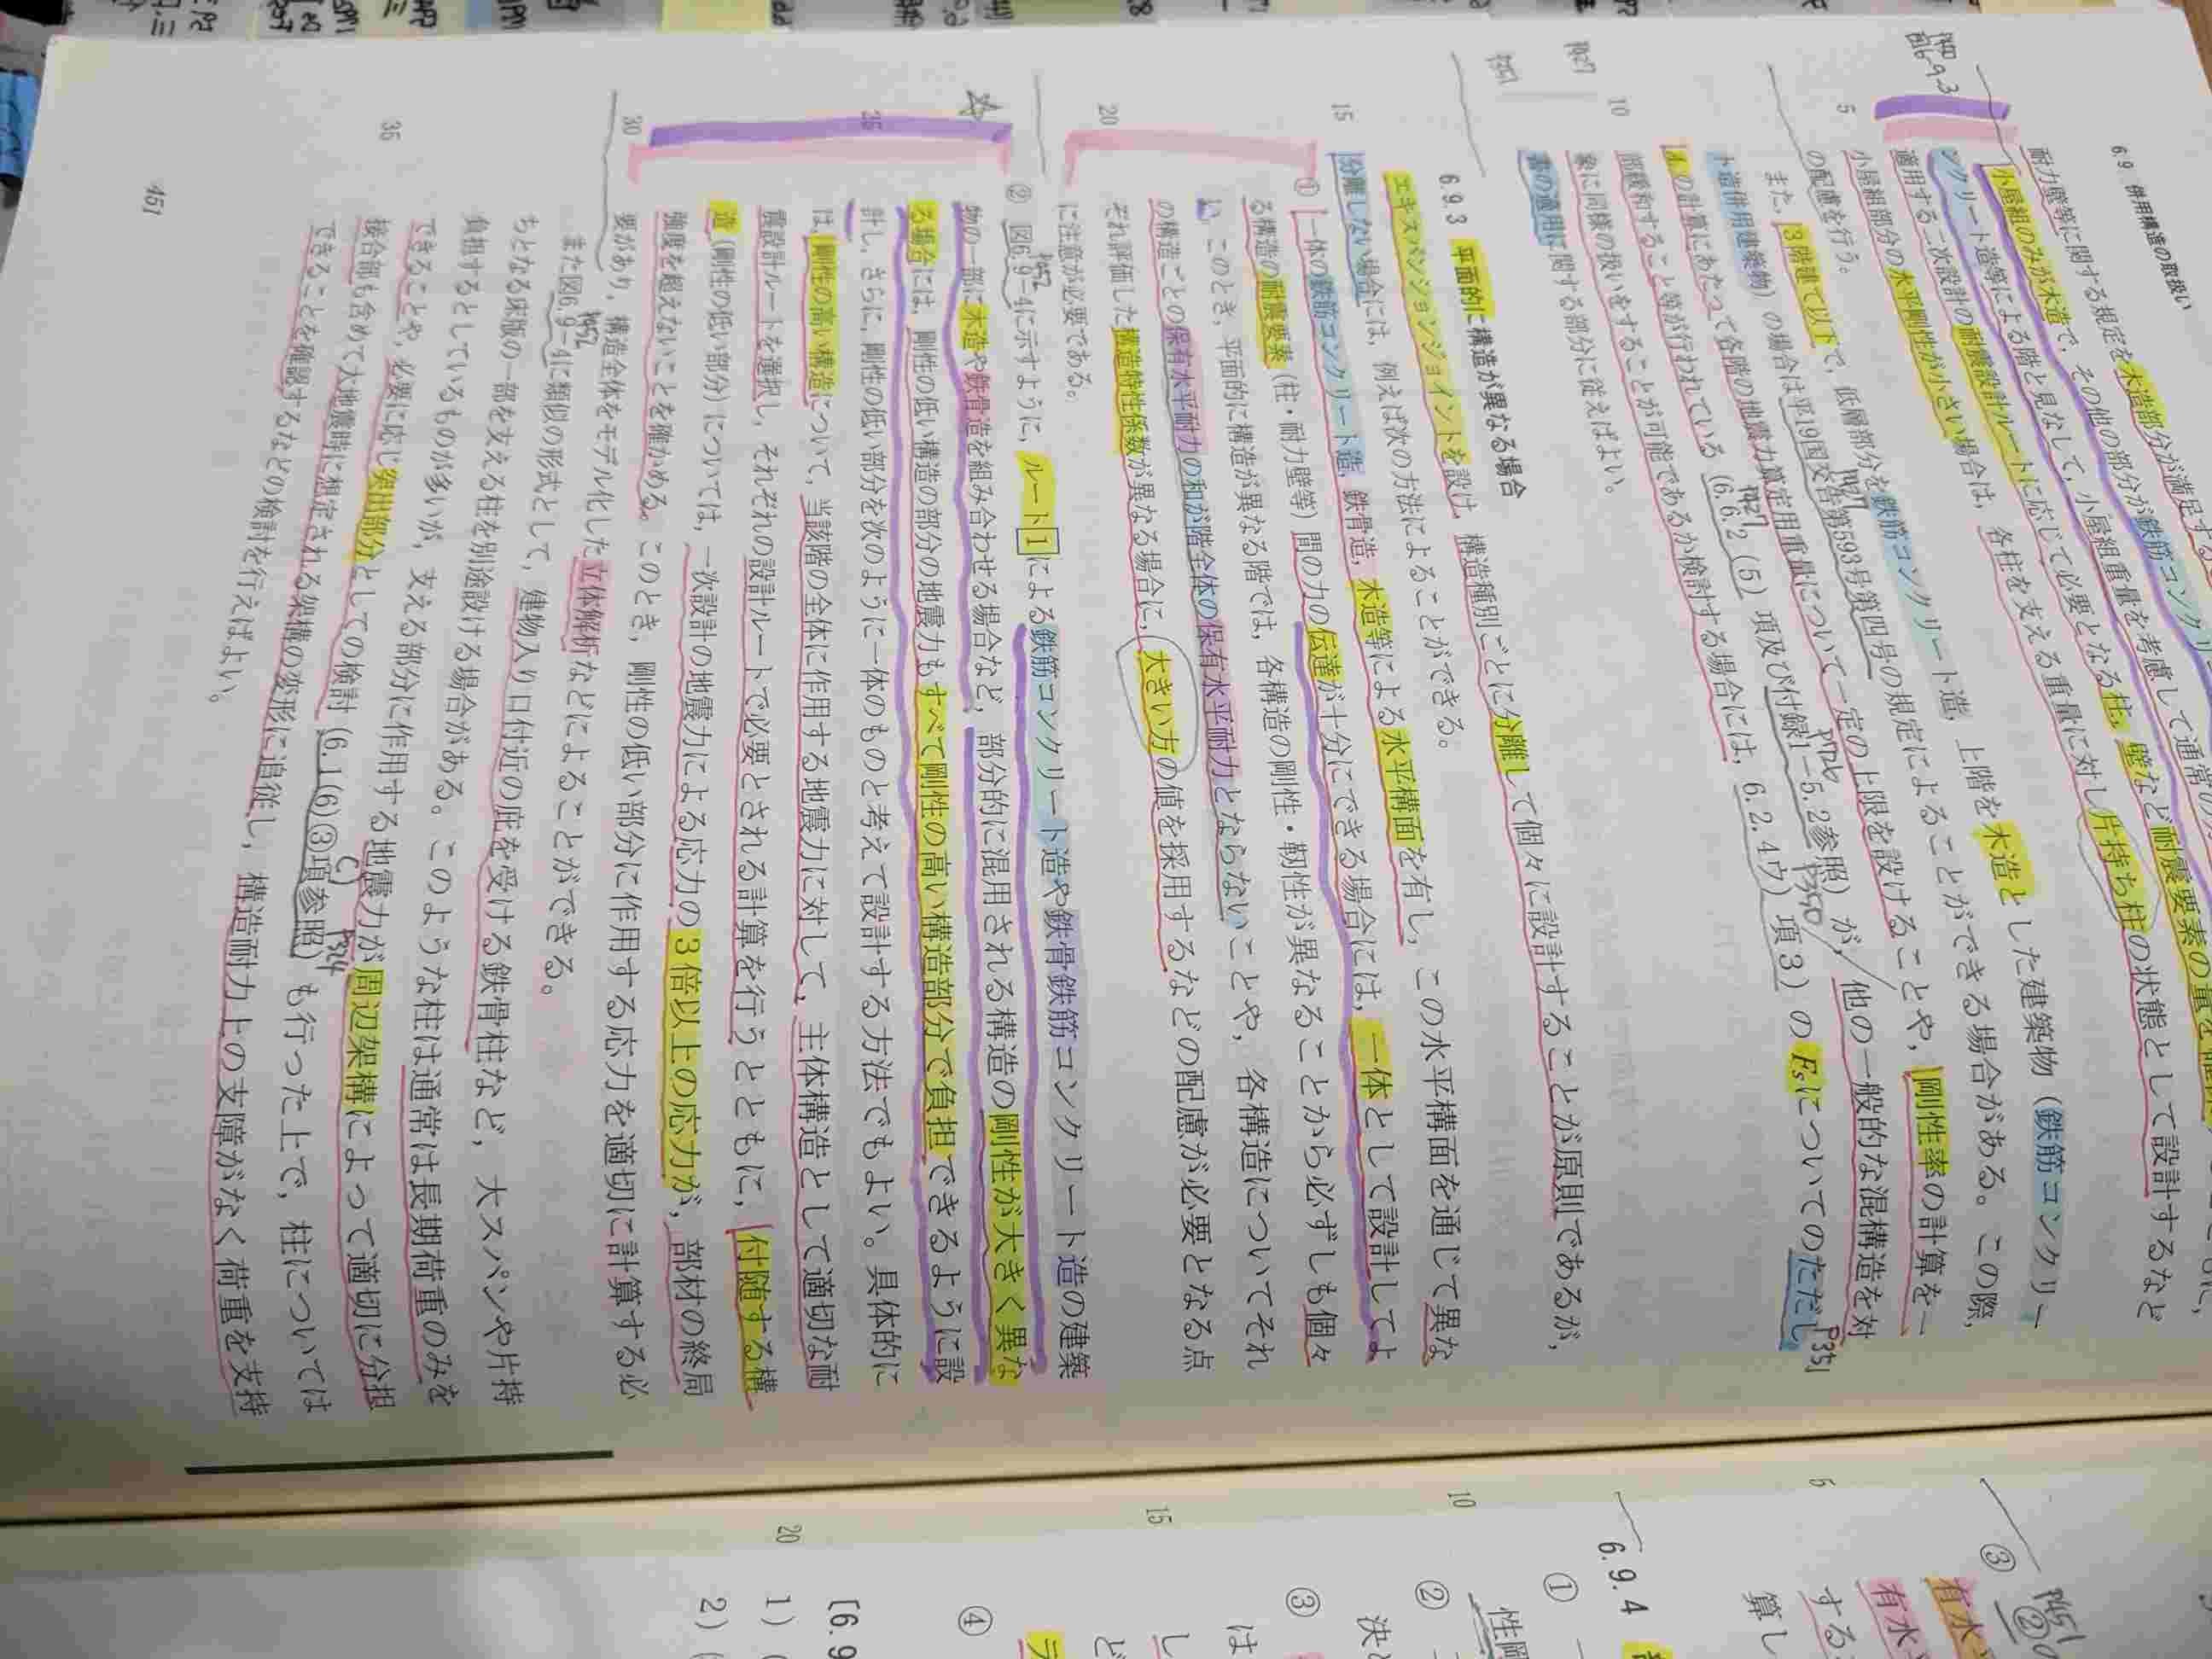 6.9 併用構造の取扱い
耐力壁等に関する規定を木造部分が満足する
小屋組のみが木造で,その他の部分が鉄筋コンクリー
ンクリート造等による階と見なして,小屋組重量を考慮して通常の
適用する二次設計の耐震設計ルートに応じて必要となる柱,壁など耐震要素の量を
小屋組部分の水平剛性が小さい場合は,各柱を支える重量に対し片持ち柱の状態として設計するなど
の配慮を行う。
また,3階建て以下で,低層部分を鉄筋コンクリート造,上階を木造とした建築物(鉄筋コンクリー
ト造併用建築物)の場合は平19国交告第593号第四号の規定によることができる場合がある。この際,
Aiの計算にあたって各階の地震力算定用重量について一定の上限を設けることや,剛性率の計算を一
部緩和すること等が行われている(6.6.2(5)項及び付録1-5.2参照)が,他の一般的な混構造を対
象に同様の扱いをすることが可能であるか検討する場合には,6.2.4ウ)項3)のFsについてのただし
書の適用に関する部分に従えばよい。
6.9.3 平面的に構造が異なる場合
エキスパンションジョイントを設け,構造種別ごとに分離して個々に設計することが原則であるが,
分離しない場合には,例えば次の方法によることができる。
① 一体の鉄筋コンクリート造,鉄骨造,木造等による水平構面を有し,この水平構面を通じて異な
る構造の耐震要素(柱・耐力壁等)間の力の伝達が十分にできる場合には,一体として設計してよ
い。このとき,平面的に構造が異なる階では,各構造の剛性・靭性が異なることから必ずしも個々
の構造ごとの保有水平耐力の和が階全体の保有水平耐力とならないことや,各構造についてそれ
ぞれ評価した構造特性係数が異なる場合に,大きい方の値を採用するなどの配慮が必要となる点
に注意が必要である。
② 図6.9-4に示すように,ルート1による鉄筋コンクリート造や鉄骨鉄筋コンクリート造の建築
物の一部に木造や鉄骨造を組み合わせる場合など,部分的に混用される構造の剛性が大きく異な
る場合には,剛性の低い構造の部分の地震力もすべて剛性の高い構造部分で負担できるように設
計し,さらに,剛性の低い部分を次のように一体のものと考えて設計する方法でもよい。具体的に
は,剛性の高い構造について,当該階の全体に作用する地震力に対して,主体構造として適切な耐
震設計ルートを選択し,それぞれの設計ルートで必要とされる計算を行うとともに,付随する構
造(剛性の低い部分)については,一次設計の地震力による応力の3倍以上の応力が,部材の終局
強度を超えないことを確かめる。このとき,剛性の低い部分に作用する応力を適切に計算する必
要があり,構造全体をモデル化した立体解析などによることができる。
また図6.9-4に類似の形式として,建物入り口付近の庇を受ける鉄骨柱など,大スパンや片持
ちとなる床版の一部を支える柱を別途設ける場合がある。このような柱は通常は長期荷重のみを
負担するとしているものが多いが,支える部分に作用する地震力が周辺架構によって適切に分担
できることや,必要に応じ突出部分としての検討(6.1(6)③項参照)も行った上で,柱については
接合部も含めて大地震時に想定される架構の変形に追従し,構造耐力上の支障がなく荷重を支持
できることを確認するなどの検討を行えばよい。
451
5
10
15
20
25
30
35
図6-9-3
P427
P351
P427
P427
P726
P350
P351
P452
P452
P324
C)
5
10
15
20
③
P451
②の
有水
有水
する
算し
6.9.4
①
②
決
③
は
し
ど
ラ
④
[6.9
1)
2)